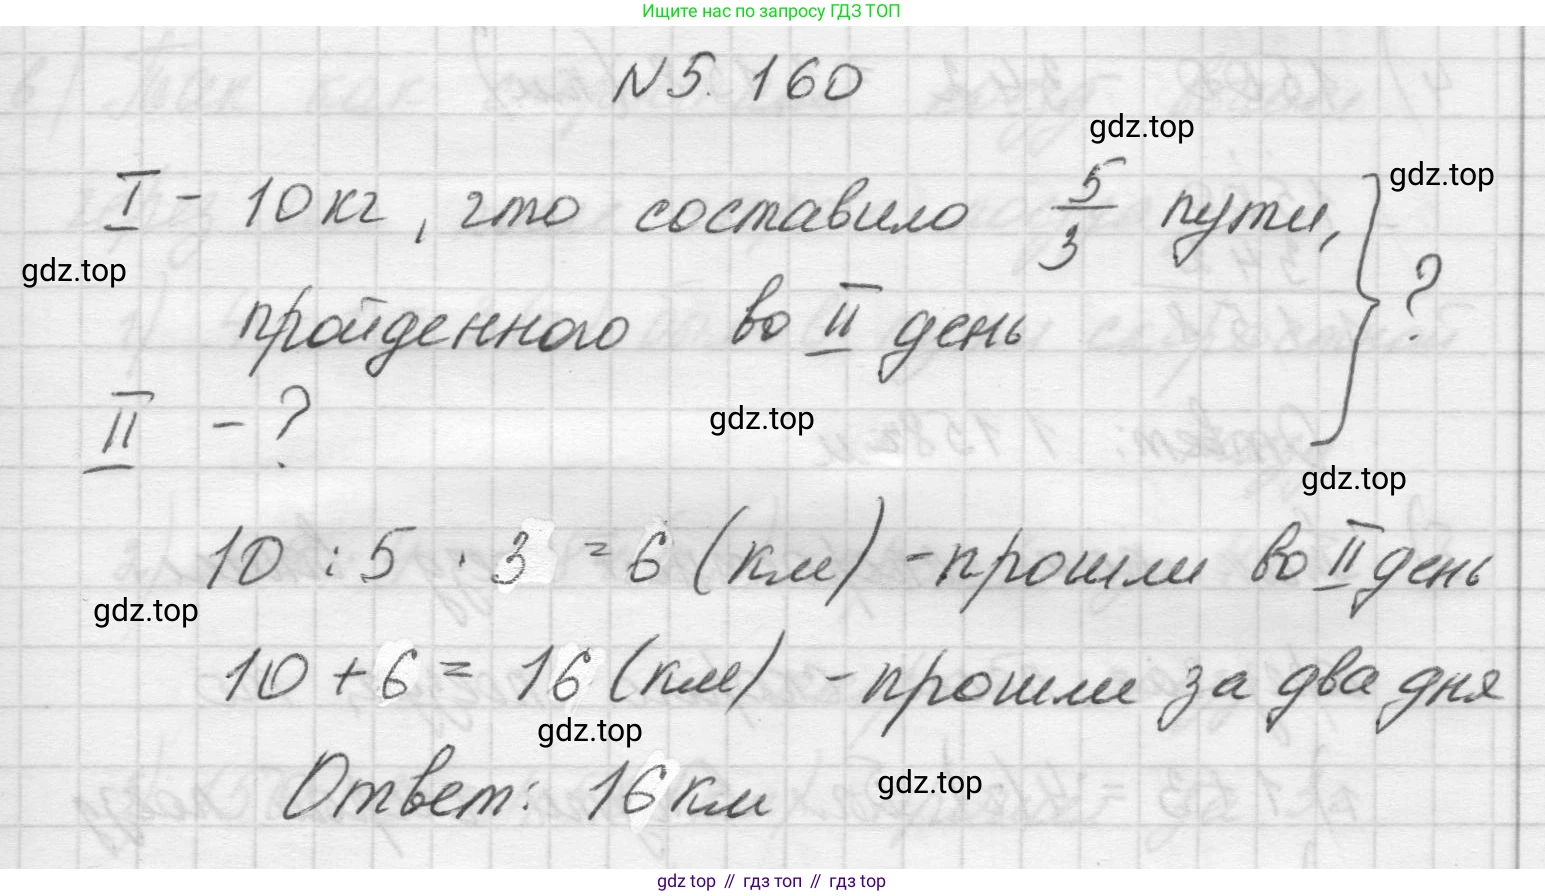 Ищите нас по запросу ГДЗ ТОП
№5.160
gdz.top
gdz.top
I - 10 кг, что составило 5/3 пути,
gdz.top
пройденного во II день
?
II - ?
gdz.top
gdz.top
10 : 5 · 3 = 6 (км) - прошли во II день
gdz.top
10 + 6 = 16 (км) - прошли за два дня
gdz.top
Ответ: 16 км
gdz.top
gdz top // гдз топ // gdz top